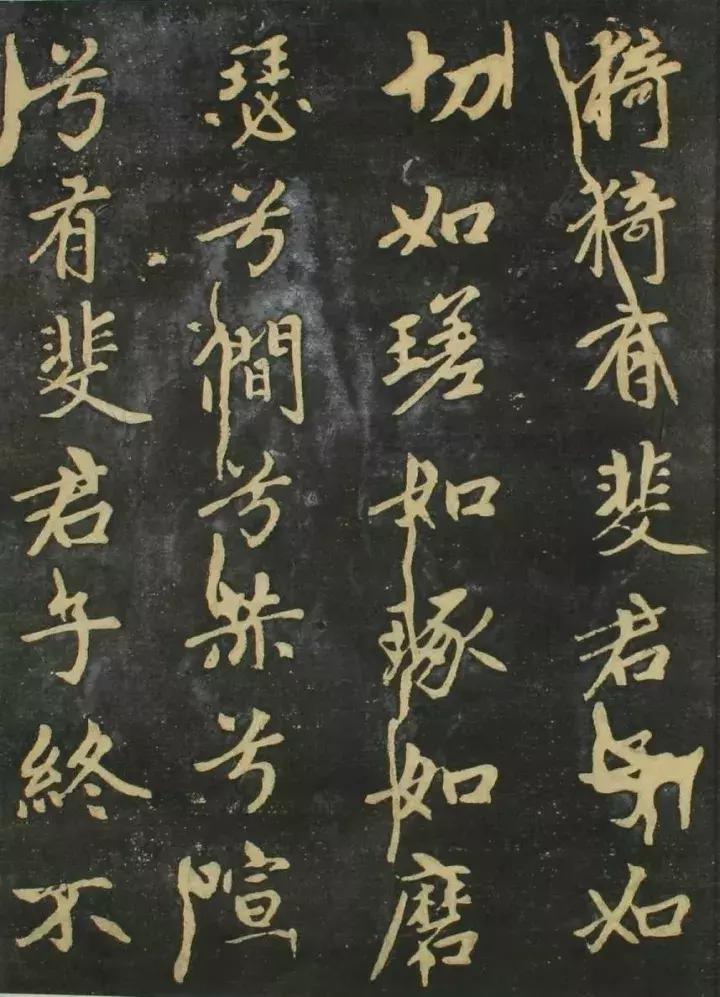 猗猗有斐君子如
切如瑳如琢如磨
瑟兮僩兮赫兮喧
兮有斐君子終不